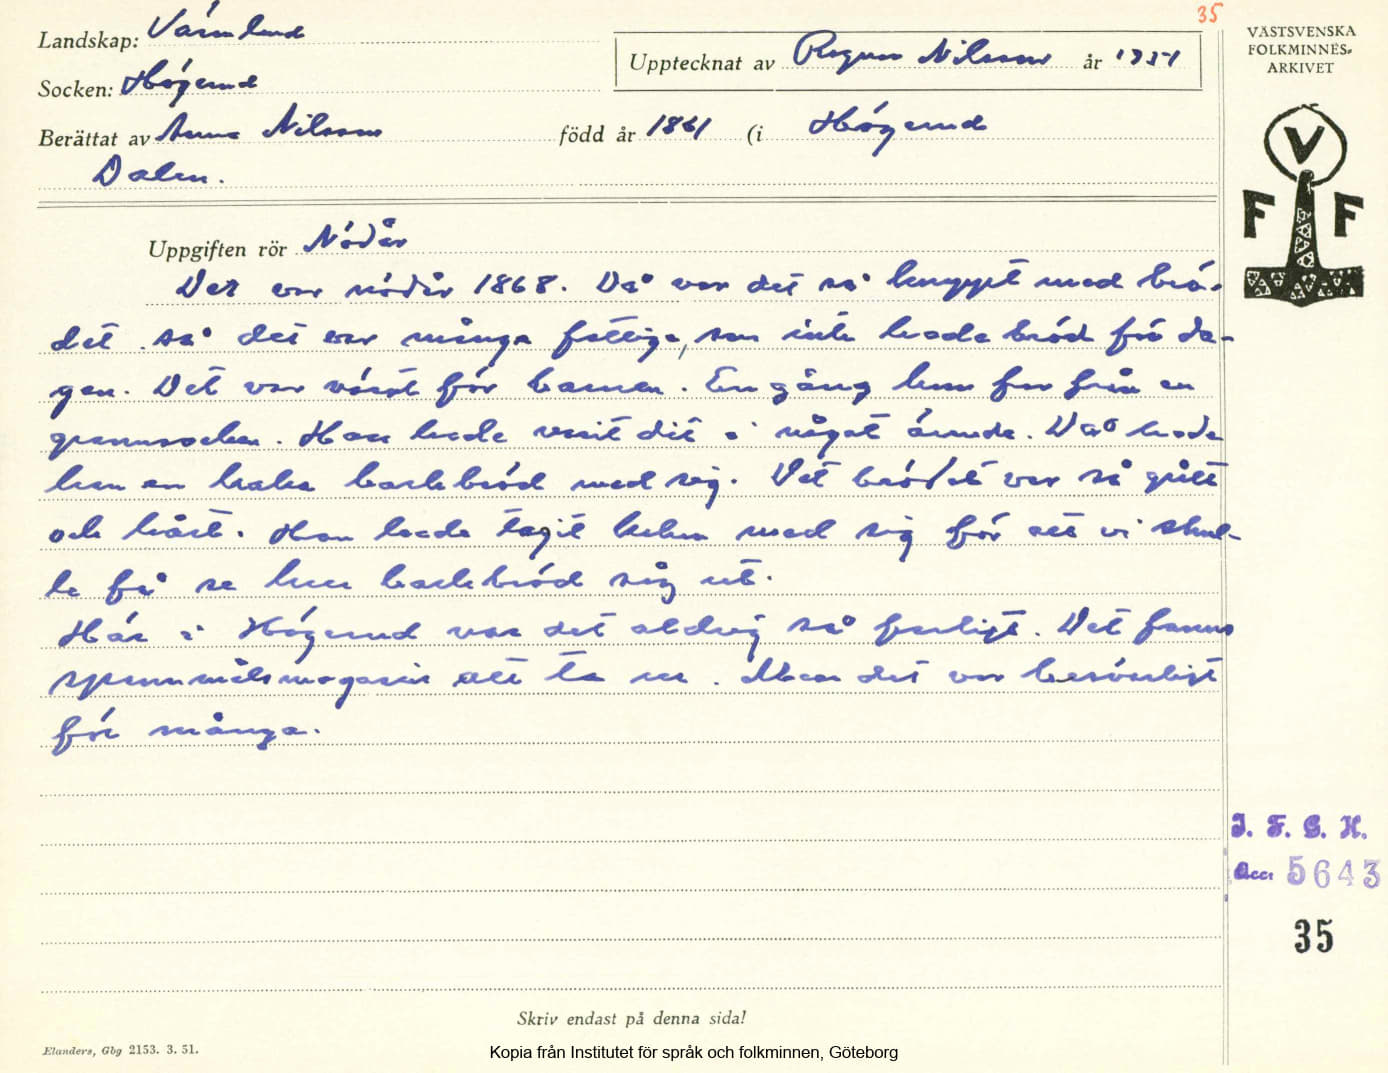 35
Landskap: Värmland
Socken: Högerud
Upptecknat av Ragnar Nilsson år 1951
Berättat av Anna Nilsson född år 1861 (i Högerud
Dalen.
VÄSTSVENSKA
FOLKMINNES-
ARKIVET
V
F F
Uppgiften rör Nödår
Det var nödår 1868. Då var det så knappt med brö-
det så det var många fattiga, som inte hade bröd för da-
gen. Det var värst för barnen. En gång kom far från en
grannsocken. Han hade varit dit i något ärende. Då hade
han en kaka barkbröd med sig. Det brödet var så grått
och hårt. Han hade tagit kakan med sig för att vi skul-
le få se hur barkbröd såg ut.
Här i Högerud var det aldrig så farligt. Det fanns
spannmålsmagasin att ta ur. Men det var besvärligt
för många.
I. F. G. H.
Acc: 5643
35
Skriv endast på denna sida!
Elanders, Gbg 2153. 3. 51.
Kopia från Institutet för språk och folkminnen, Göteborg